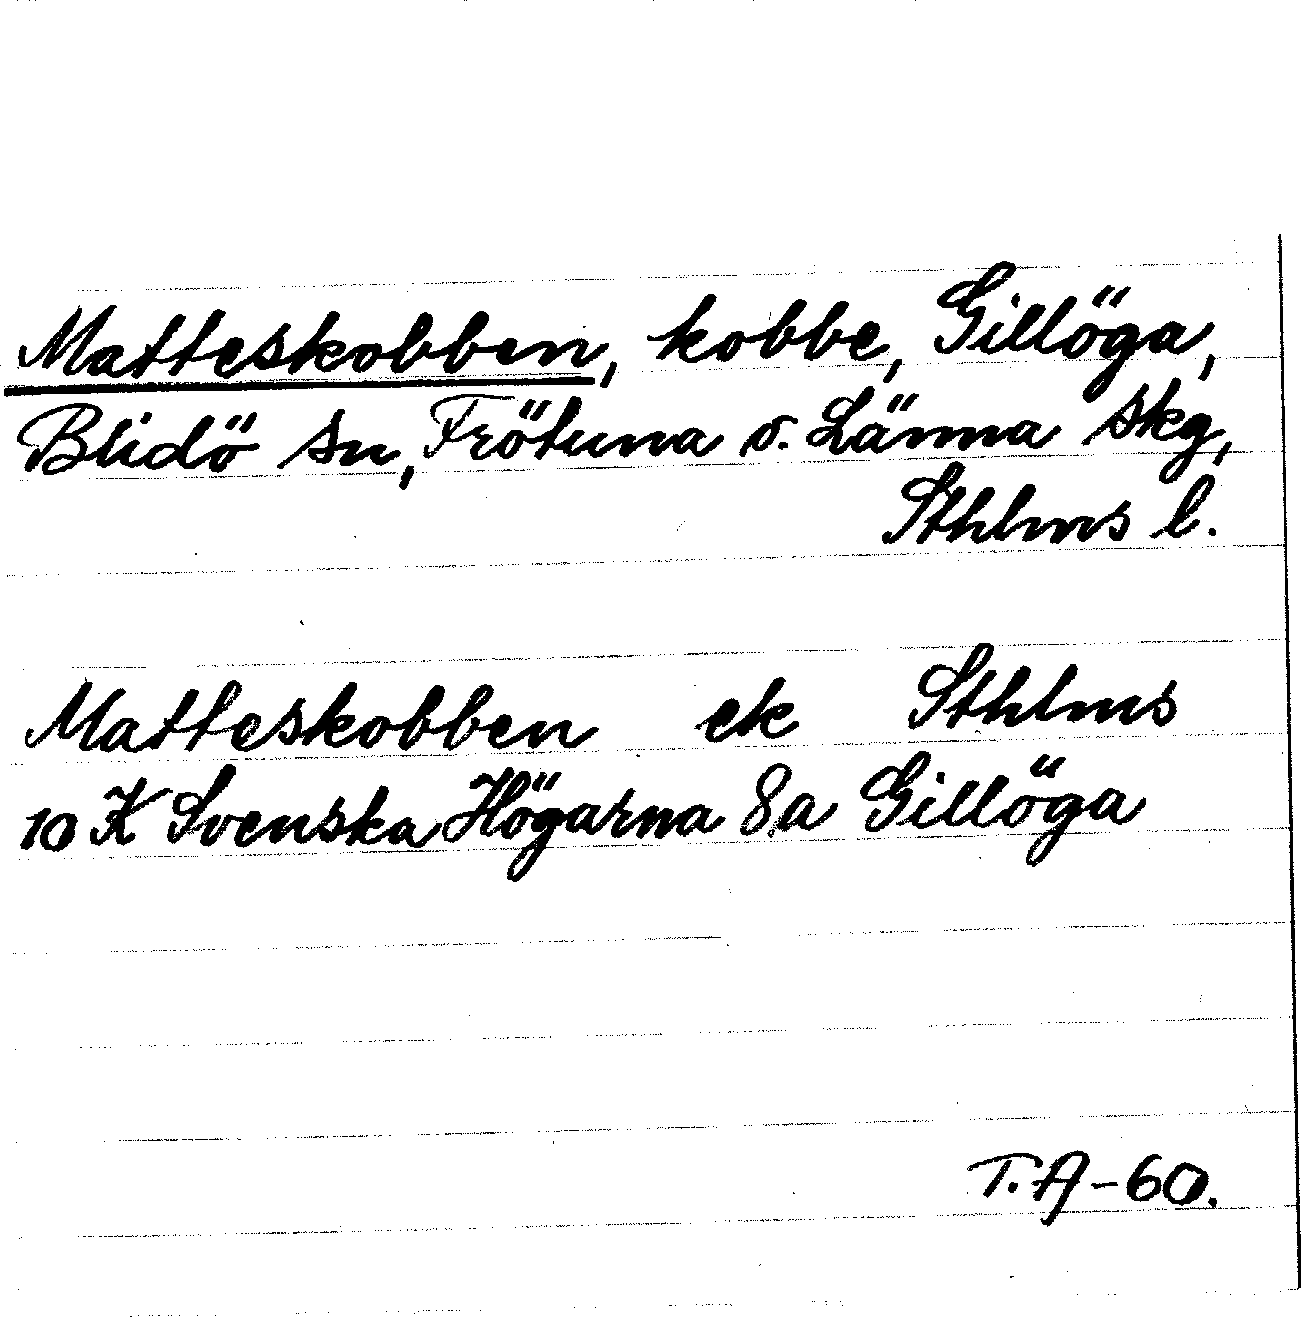 Matteskobben, kobbe, Gillöga,
Blidö sn, Frötuna o. Länna skg,
Sthlms l.
Matteskobben ek Sthlms
10 K Svenska Högarna 8a Gillöga
T.A-60.